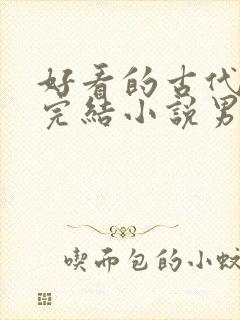 好看的古代
完結小說男
喫而包的小蚊